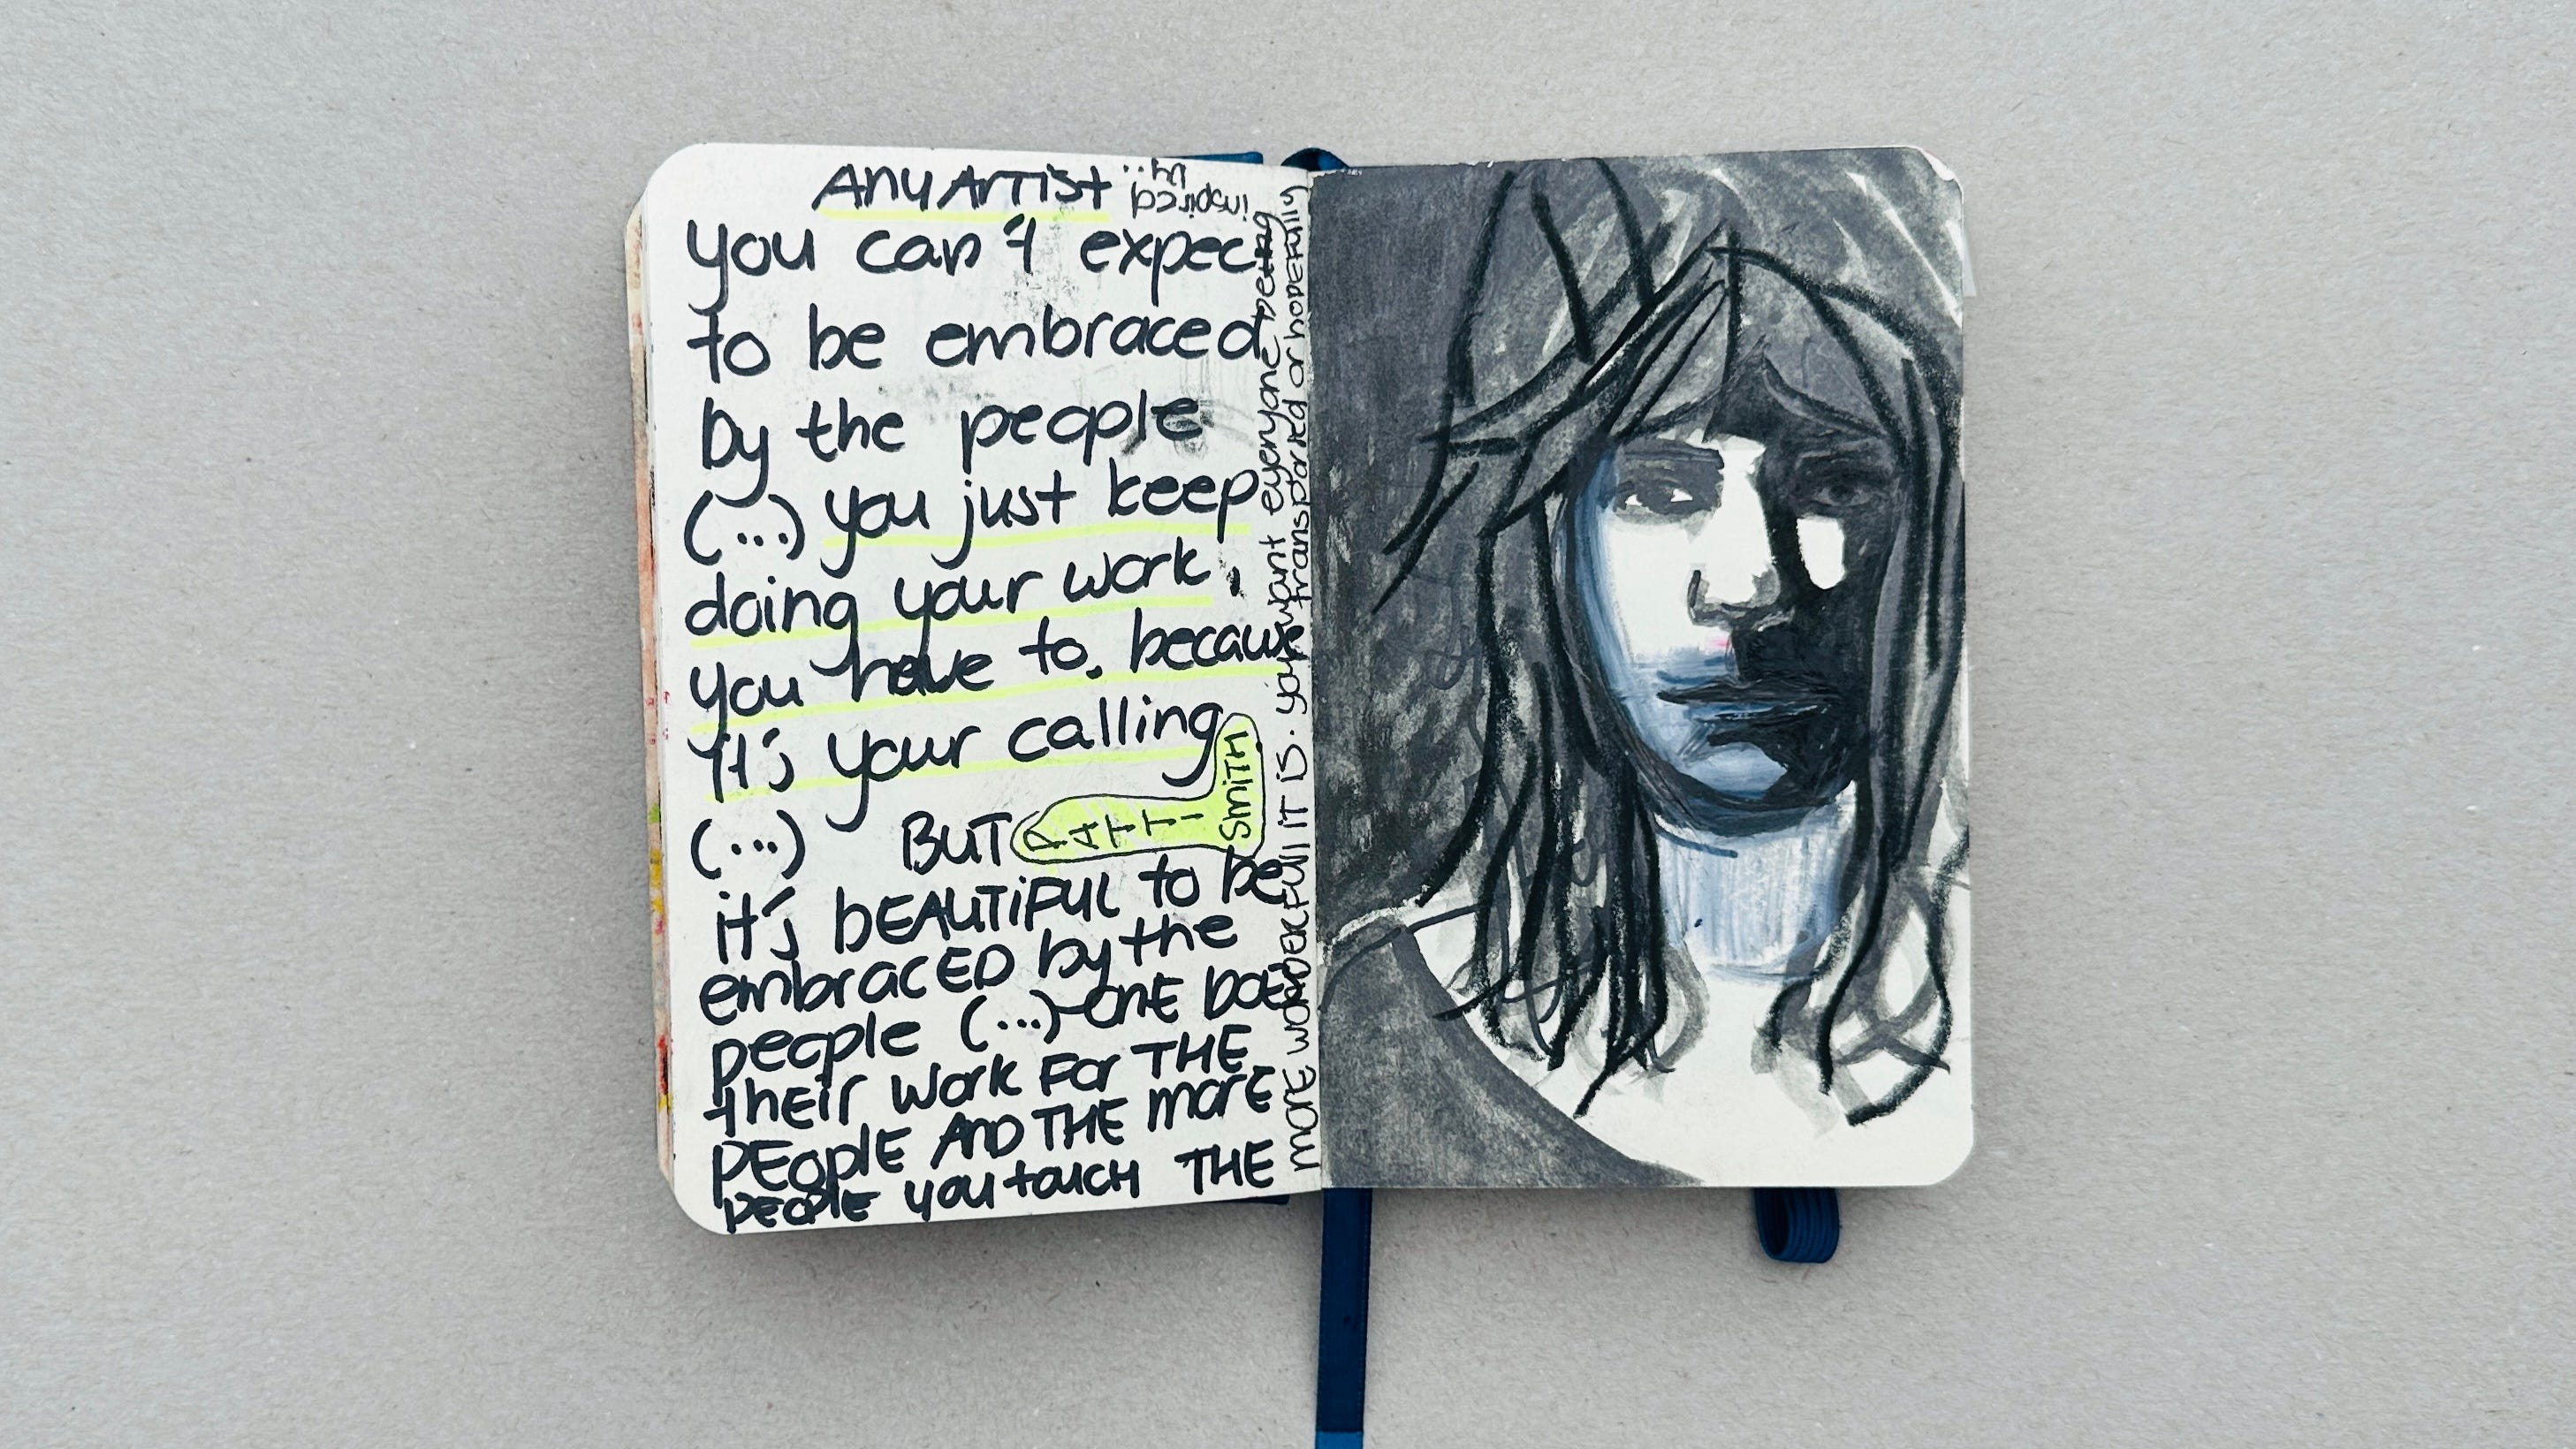 Any Artist
inspired by..
you can't expec
to be embraced
by the people
(...) you just keep
doing your work,
you have to. because
it's your calling
PATTI Smith
(...) BUT
it's bEAUTiFUL to be
embracED by the
people (...)-onE DOES
their work For THE
PEOplE AnD THE morE
PEOPlE you touch THE
morE wonDERFUll IT IS. you want everyone being
transported or hopefully